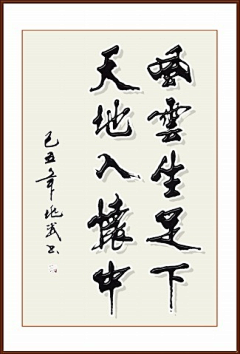 風雲生足下
天地入懷中
己丑年